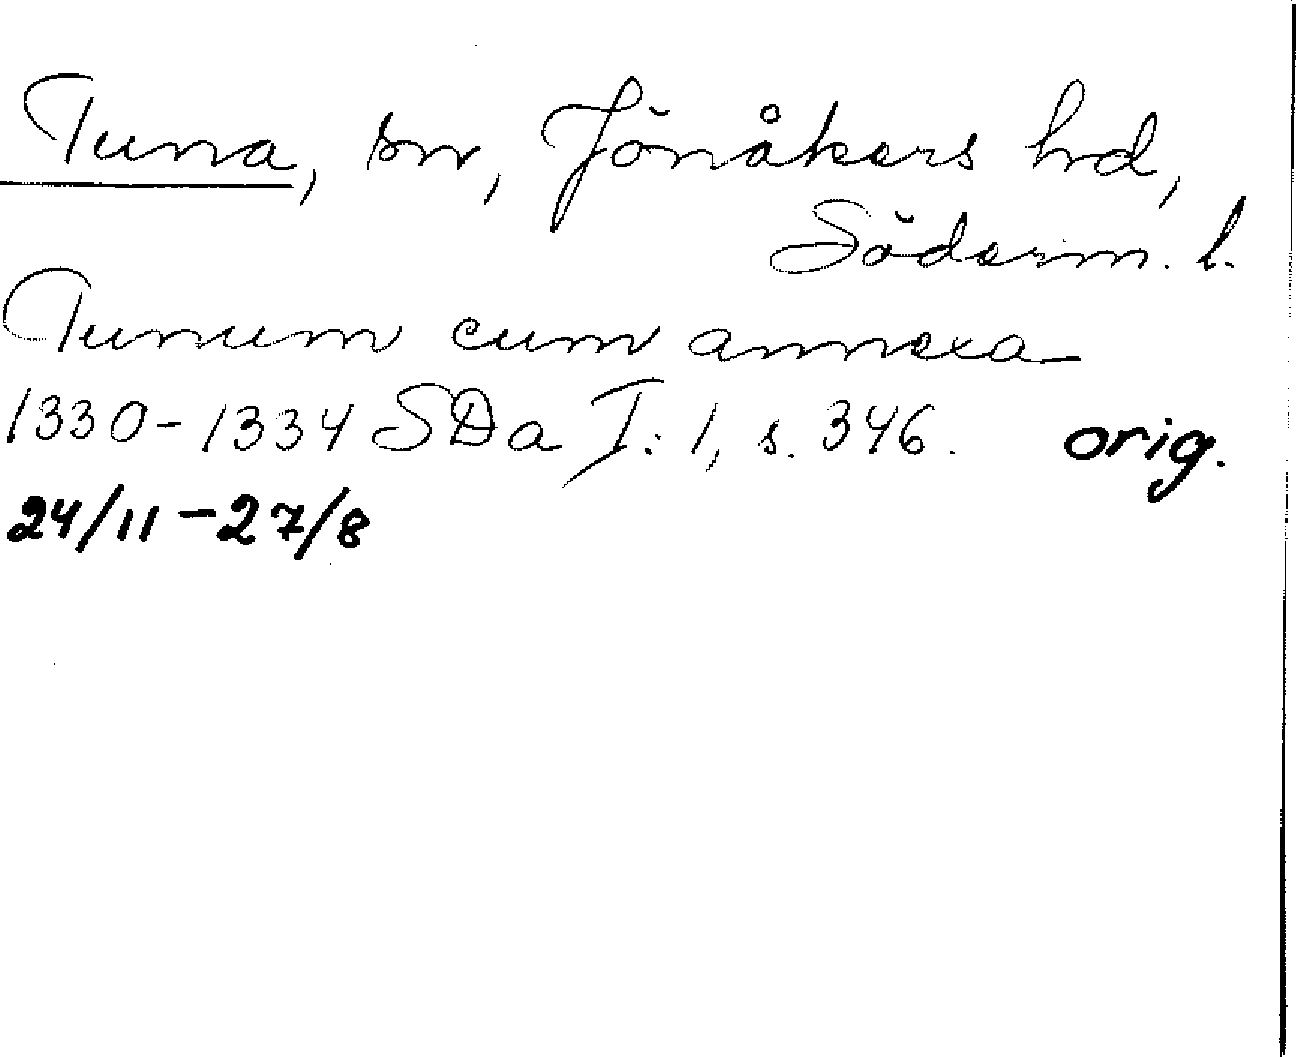 Tuna, sn, Jönåkers hrd,
Söderm. l.
Tunum cum annexa
1330-1334 SDa I: 1, s. 346. orig.
24/11-27/8